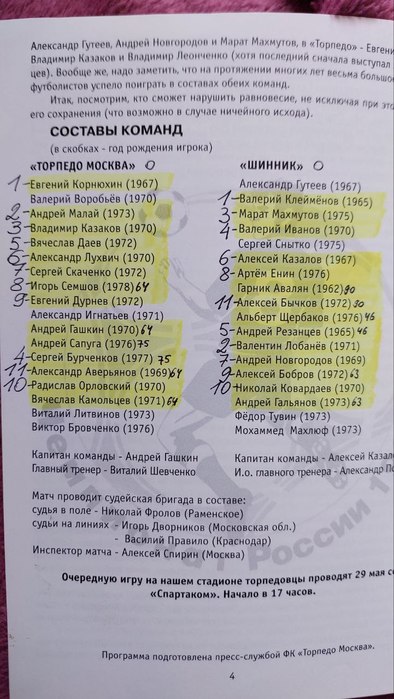 Александр Гутеев, Андрей Новгородов и Марат Махмутов, в «Торпедо» - Евгени
Владимир Казаков и Владимир Леонченко (хотя последний сначала выступал
цев). Вообще же, надо заметить, что на протяжении многих лет весьма большое
футболистов успело поиграть в составах обеих команд.
Итак, посмотрим, кто сможет нарушить равновесие, не исключая при это
его сохранения (что возможно в случае ничейного исхода).
СОСТАВЫ КОМАНД
(в скобках - год рождения игрока)
«ТОРПЕДО МОСКВА»
1 - Евгений Корнюхин (1967)
Валерий Воробьёв (1970)
2 - Андрей Малай (1973)
3 - Владимир Казаков (1970)
5 - Вячеслав Даев (1972)
6 - Александр Лухвич (1970)
7 - Сергей Скаченко (1972)
8 - Игорь Семшов (1978) 64
9 - Евгений Дурнев (1972)
Александр Игнатьев (1971)
Андрей Гашкин (1970) 64
Андрей Сапуга (1976) 75
4 - Сергей Бурченков (1977) 75
11 - Александр Аверьянов (1969) 64
10 - Радислав Орловский (1970)
Вячеслав Камольцев (1971) 64
Виталий Литвинов (1973)
Виктор Бровченко (1976)
Капитан команды - Андрей Гашкин
Главный тренер - Виталий Шевченко
«ШИННИК»
Александр Гутеев (1967)
1 - Валерий Клеймёнов (1965)
3 - Марат Махмутов (1975)
4 - Валерий Иванов (1970)
Сергей Снытко (1975)
6 - Алексей Казалов (1967)
8 - Артём Енин (1976)
Гарник Авалян (1962) 90
11 - Алексей Бычков (1972) 90
Альберт Щербаков (1976) 46
5 - Андрей Резанцев (1965) 46
2 - Валентин Лобанёв (1971)
7 - Андрей Новгородов (1969)
9 - Алексей Бобров (1972) 63
10 - Николай Ковардаев (1970)
Андрей Гальянов (1973) 63
Фёдор Тувин (1973)
Мохаммед Махлюф (1973)
Капитан команды - Алексей Казало
И.о. главного тренера - Александр По
Матч проводит судейская бригада в составе:
судья в поле - Николай Фролов (Раменское)
судьи на линиях - Игорь Дворников (Московская обл.)
- Василий Правило (Краснодар)
Инспектор матча - Алексей Спирин (Москва)
Очередную игру на нашем стадионе торпедовцы проводят 29 мая со
«Спартаком». Начало в 17 часов.
Программа подготовлена пресс-службой ФК «Торпедо Москва».
4